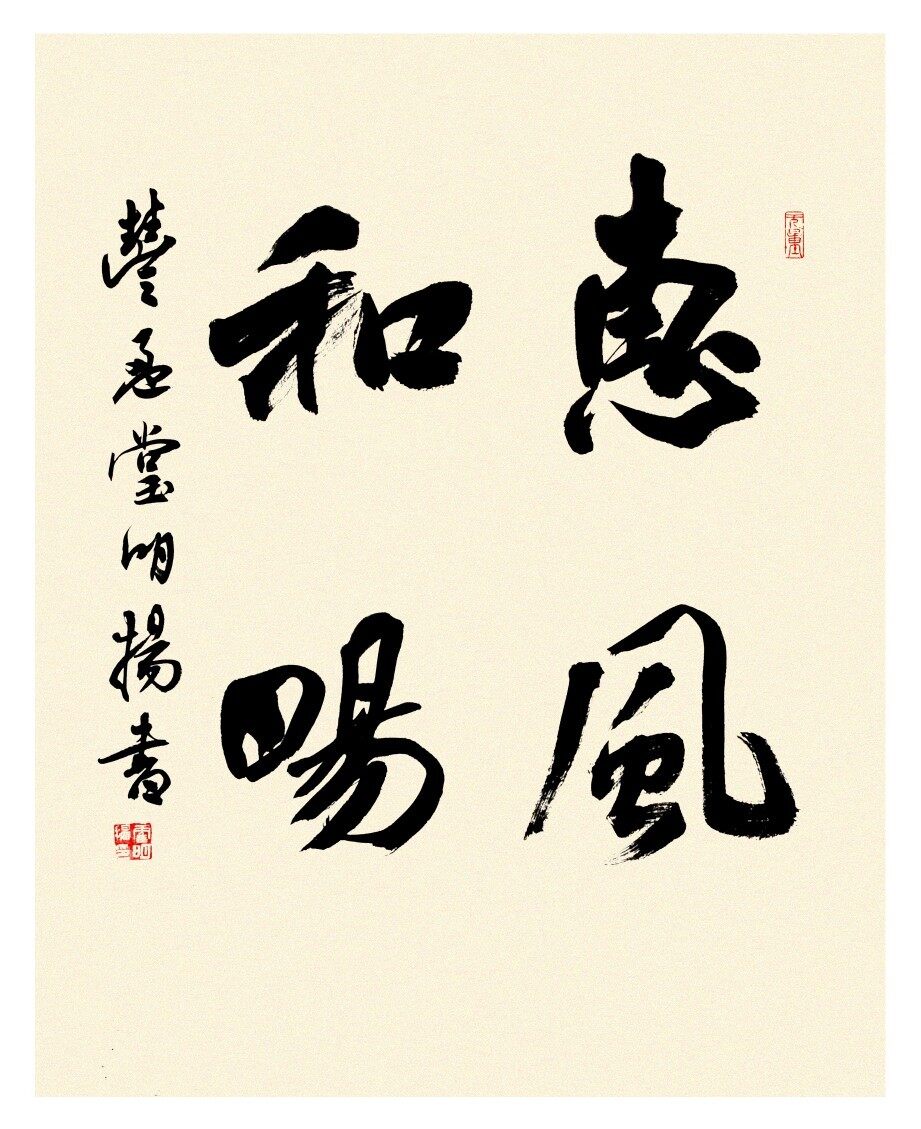 惠風
和暢
豐盈堂明揚書